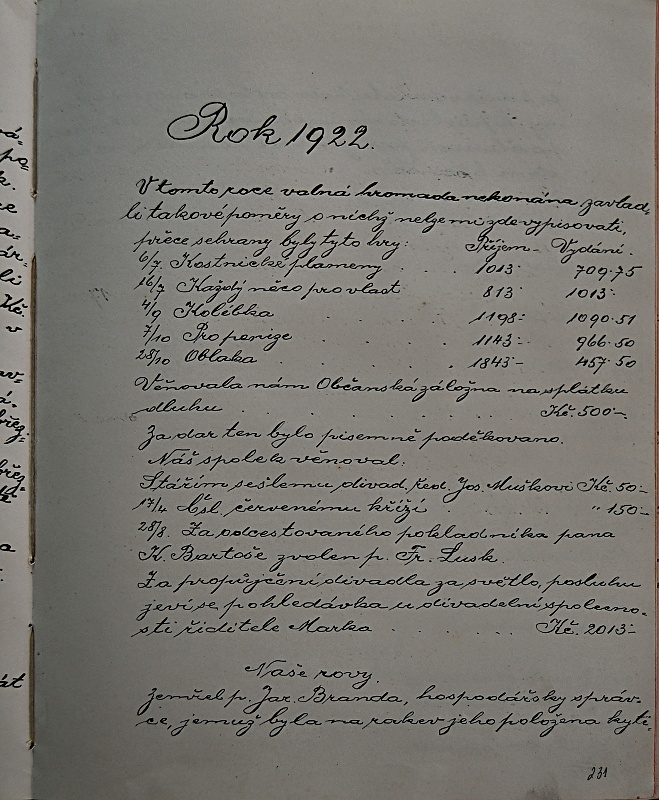 Rok 1922.
V tomto roce valná hromada nekonána zavlád-
li takové poměry o nichž nelze mi zde vypisovati,
přece sehrany byly tyto hry: Příjem - Vydání.
6/7. Kostnické plameny . . . 1013·- 709·75
16/7 Každý něco pro vlast . . 813·- 1013·-
4/9 Kolébka . . . . 1198·- 1090·51
7/10 Pro peníze . . . . 1143·- 966·50
28/10 Oblaka . . . . 1843·- 457·50
Věnovala nám Občanská záložna na splátku
dluhu . . . . . . Kč. 500·-.
Za dar ten bylo písemně poděkováno.
Náš spolek věnoval:
Stářím sešlému divad. řed. Jos. Muškovi Kč. 50·-
17/4 Čsl. červenému kříži . . . . " 150·-
28/8. Za odcestovaného pokladníka pana
K. Bartoše zvolen p. Fr. Lusk.
Za propůjčení divadla za světlo, posluhu
jeví se pohledávka u divadelní společno-
sti řiditele Marka . . . . Kč. 2013·-
Naše rovy.
Zemřel p. Jar. Branda, hospodářský správ-
ce, jemuž byla na rakev jeho položena kyti-
231